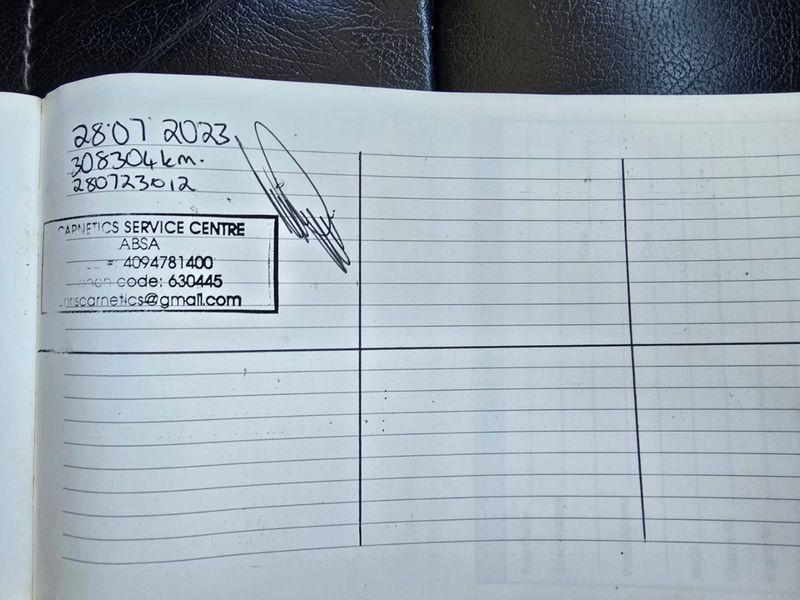 28.07 2023
308304km.
280723012
CARNETICS SERVICE CENTRE
ABSA
#: 4094781400
code: 630445
@gmail.com